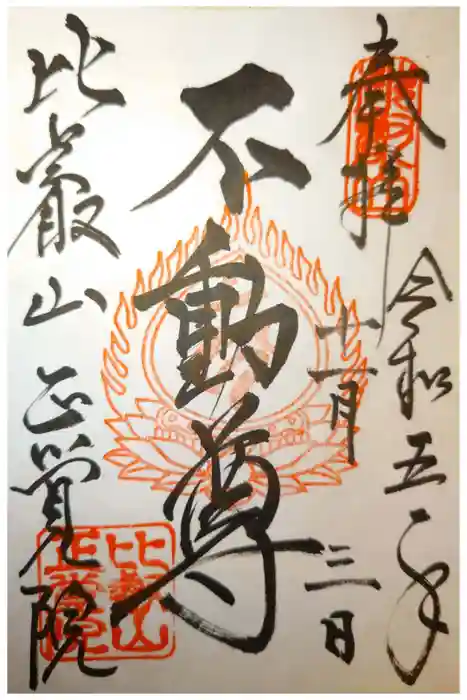 奉拝
令和五年
十一月
三日
不動尊
比叡山 正覚院
比叡山
正覚院